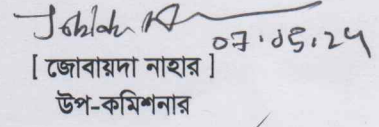 07.05.24
[ জোবায়দা নাহার ]
উপ-কমিশনার